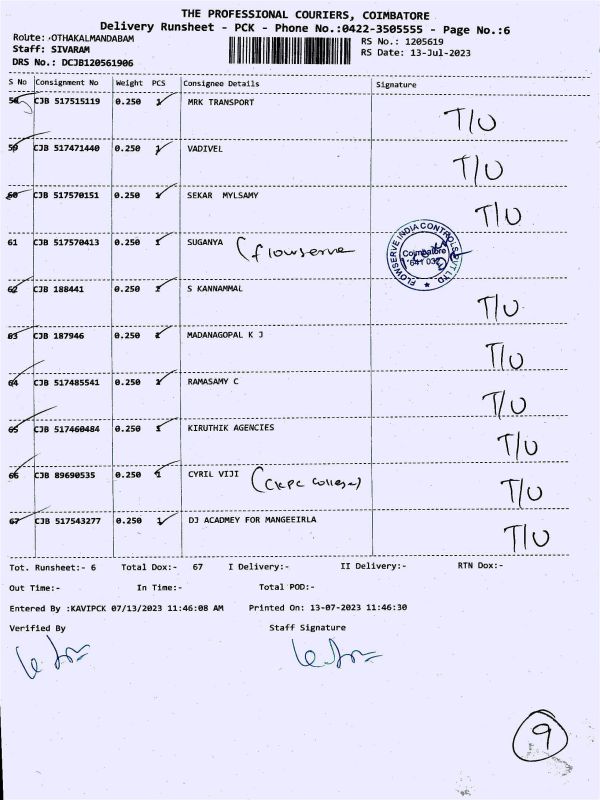 THE PROFESSIONAL COURIERS, COIMBATORE
Delivery Runsheet - PCK - Phone No.:0422-3505555 - Page No.:6
Route: -OTHAKALMANDABAM RS No.: 1205619
Staff: SIVARAM RS Date: 13-Jul-2023
DRS No.: DCJB120561906
S No Consignment No Weight PCS Consignee Details Signature
58 CJB 517515119 0.250 1 MRK TRANSPORT T/U
59 CJB 517471440 0.250 1 VADIVEL T/U
60 CJB 517570151 0.250 1 SEKAR MYLSAMY T/U
61 CJB 517570413 0.250 1 SUGANYA (flowserve FLOWSERVE INDIA CONTROLS PVT LTD. Coimbatore 641 032
62 CJB 188441 0.250 1 S KANNAMMAL T/U
63 CJB 187946 0.250 1 MADANAGOPAL K J T/U
64 CJB 517485541 0.250 1 RAMASAMY C T/U
65 CJB 517460484 0.250 1 KIRUTHIK AGENCIES T/U
66 CJB 89690535 0.250 1 CYRIL VIJI (CKPC College) T/U
67 CJB 517543277 0.250 1 DJ ACADMEY FOR MANGEEIRLA T/U
Tot. Runsheet:- 6 Total Dox:- 67 I Delivery:- II Delivery:- RTN Dox:-
Out Time:- In Time:- Total POD:-
Entered By :KAVIPCK 07/13/2023 11:46:08 AM Printed On: 13-07-2023 11:46:30
Verified By Staff Signature
9